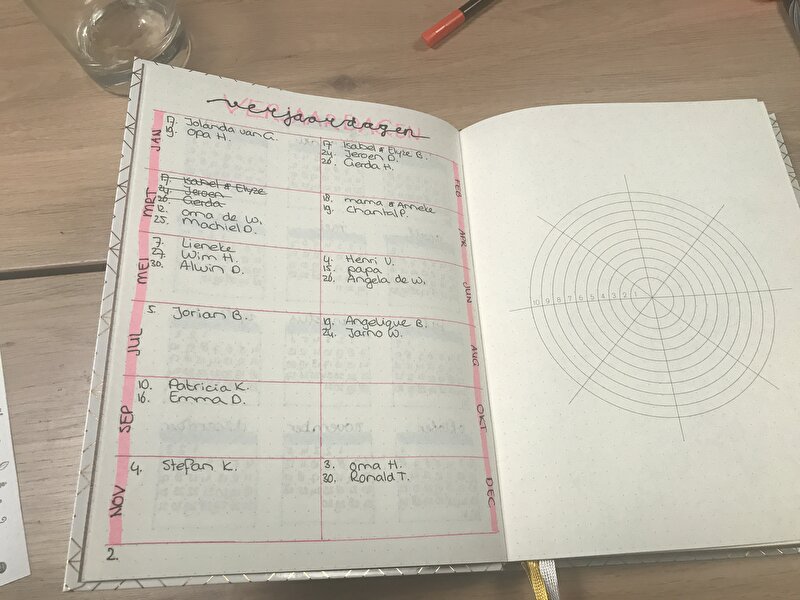 verjaardagen
JAN
17. Jolanda van G.
19. opa H.
FEB
17. Isabel & Elyze B.
24. Jeroen D.
26. Gerda H.
MRT
17. Isabel & Elyze
24. Jeroen
26. Gerda
12. oma de W.
25. Machiel D.
APR
18. mama & Anneke
19. Chantal P.
MEI
7. Lieneke
27. Wim H.
30. Alwin D.
JUN
4. Henri V.
15. papa
26. Angela de W.
JUL
5. Jorian B.
AUG
19. Angelique B.
24. Jarno W.
SEP
10. Patricia K.
16. Emma D.
OKT
NOV
4. Stefan K.
DEC
3. oma H.
30. Ronald T.
2.
10 9 8 7 6 5 4 3 2 1